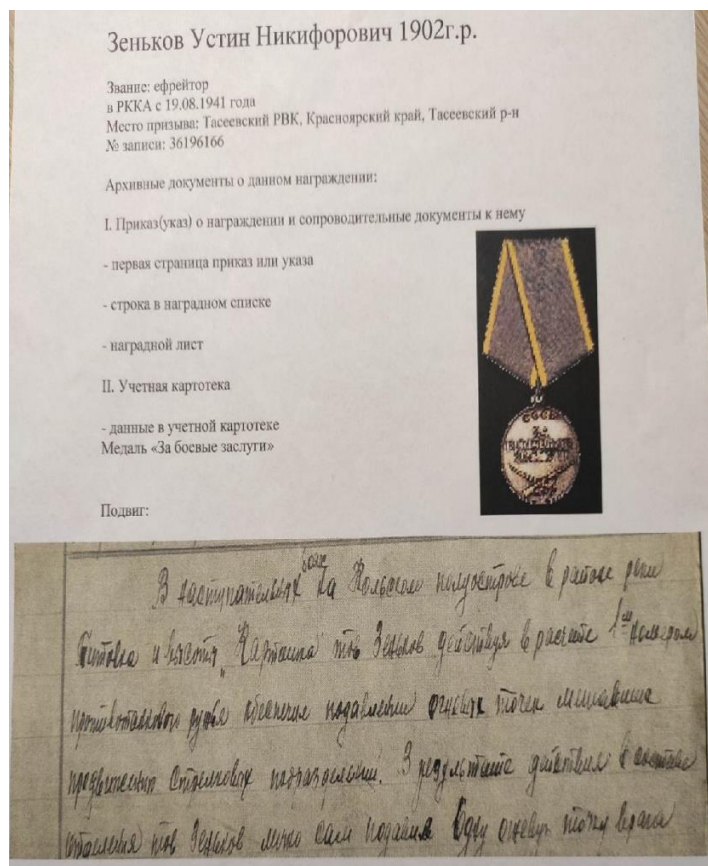 Зеньков Устин Никифорович 1902г.р.
Звание: ефрейтор
в РККА с 19.08.1941 года
Место призыва: Тасеевский РВК, Красноярский край, Тасеевский р-н
№ записи: 36196166
Архивные документы о данном награждении:
I. Приказ(указ) о награждении и сопроводительные документы к нему
- первая страница приказ или указа
- строка в наградном списке
- наградной лист
II. Учетная картотека
- данные в учетной картотеке
Медаль «За боевые заслуги»
Подвиг:
В наступательных боях на Кольском полуострове в районе реки
Титовка и высоты „Картошка" тов Зеньков действуя в расчете 1ым номером
противотанкового ружья обеспечил подавление огневых точек мешавших
продвижению стрелковых подразделений. В результате действия в составе
отделения тов Зеньков лично сам подавил одну огневую точку врага